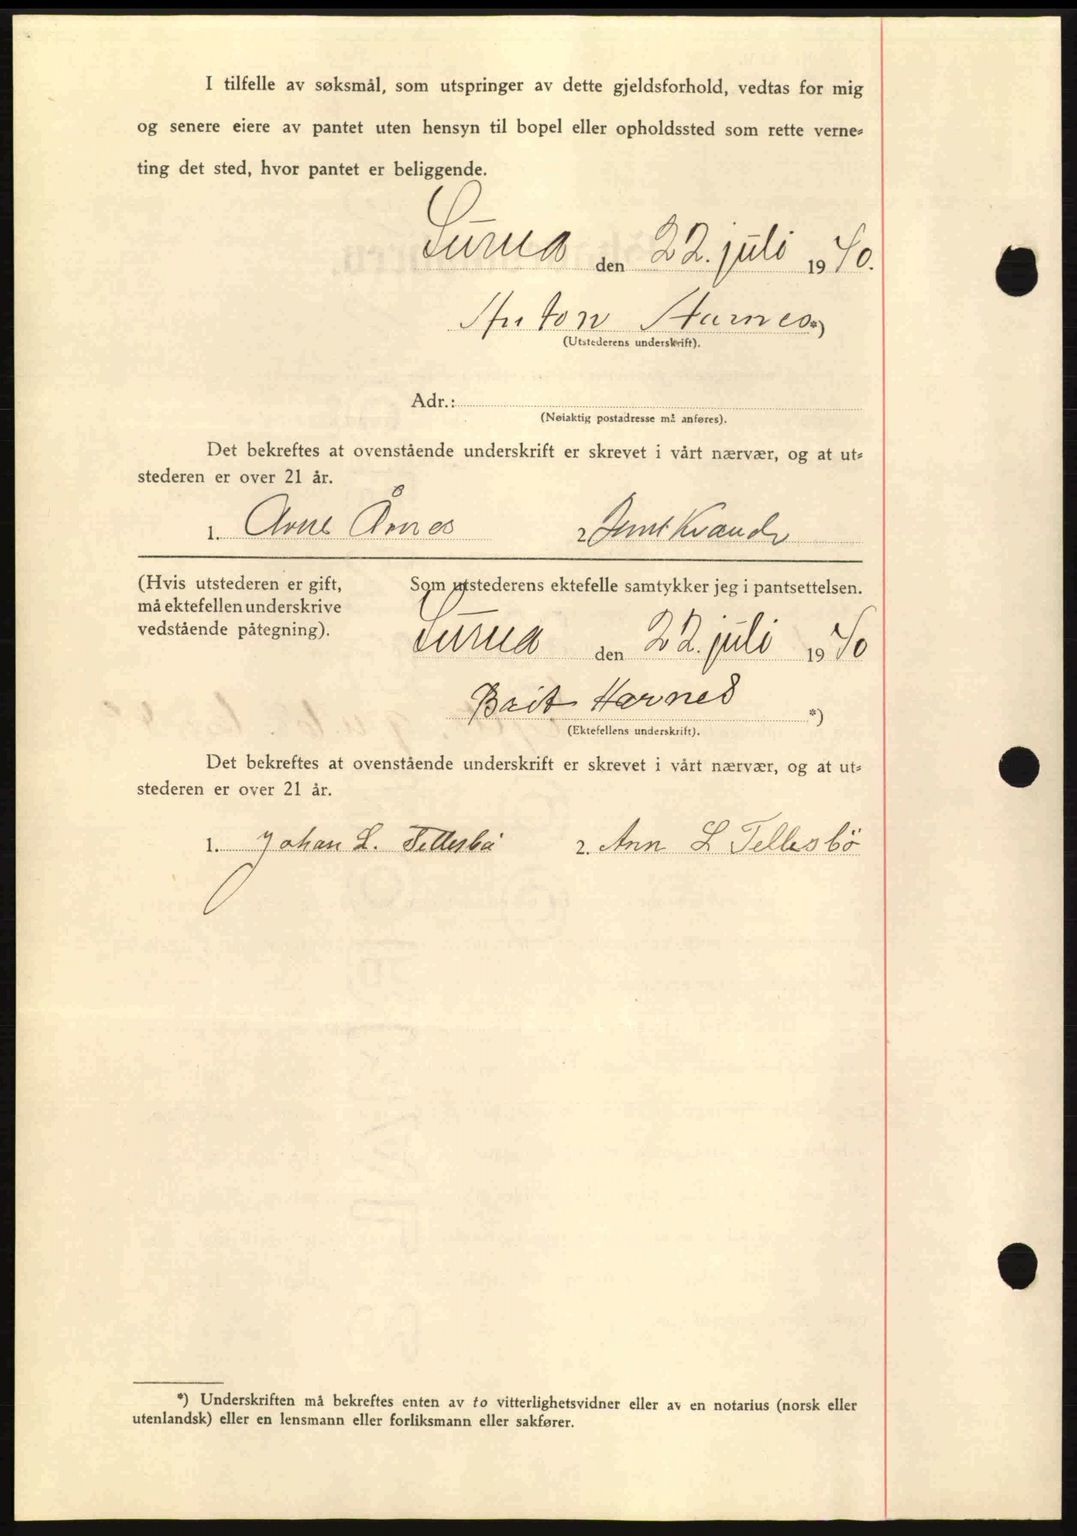 I tilfelle av søksmål, som utspringer av dette gjeldsforhold, vedtas for mig
og senere eiere av pantet uten hensyn til bopel eller opholdssted som rette verne-
ting det sted, hvor pantet er beliggende.
Surna den 22. juli 1940.
Anton Harnes*)
(Utstederens underskrift).
Adr.:
(Nøiaktig postadresse må anføres).
Det bekreftes at ovenstående underskrift er skrevet i vårt nærvær, og at ut-
stederen er over 21 år.
1. Arne Årnes 2. Kvande
(Hvis utstederen er gift,
må ektefellen underskrive
vedstående påtegning).
Som utstederens ektefelle samtykker jeg i pantsettelsen.
Surna den 22. juli 1940
Harnes *)
(Ektefellens underskrift).
Det bekreftes at ovenstående underskrift er skrevet i vårt nærvær, og at ut-
stederen er over 21 år.
1. Johan L. Tellesbø 2. Ann L Tellesbö
*) Underskriften må bekreftes enten av to vitterlighetsvidner eller av en notarius (norsk eller
utenlandsk) eller en lensmann eller forliksmann eller sakfører.